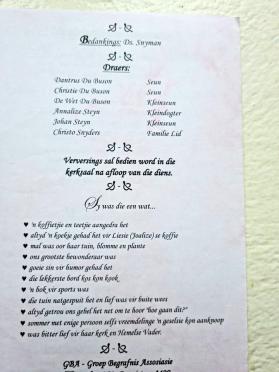 Bedankings: Ds. Snyman
Draers:
Dantrus Du Buson Seun
Christie Du Buson Seun
De Wet Du Buson Kleinseun
Annalize Steyn Kleindogter
Johan Steyn Kleinseun
Christo Snyders Familie Lid
Verversings sal bedien word in die
kerksaal na afloop van die diens.
Sy was die een wat...
♥ 'n koffietjie en teetjie aangedra het
♥ altyd 'n koekje gehad het vir Liesie (Joalize) se koffie
♥ mal was oor haar tuin, blomme en plante
♥ ons grootste bewonderaar was
♥ goeie sin vir humor gehad het
♥ die lekkerste bord kos kon kook
♥ 'n bok vir sports was
♥ die tuin natgespuit het en lief was vir buite wees
♥ altyd getrou ons gebel het net om te hoor "hoe gaan dit?"
♥ sommer met enige persoon selfs vreemdelinge 'n geselsie kon aanknoop
♥ was bitter lief vir haar kerk en Hemelse Vader.
GBA - Groep Begrafnis Assosiasie